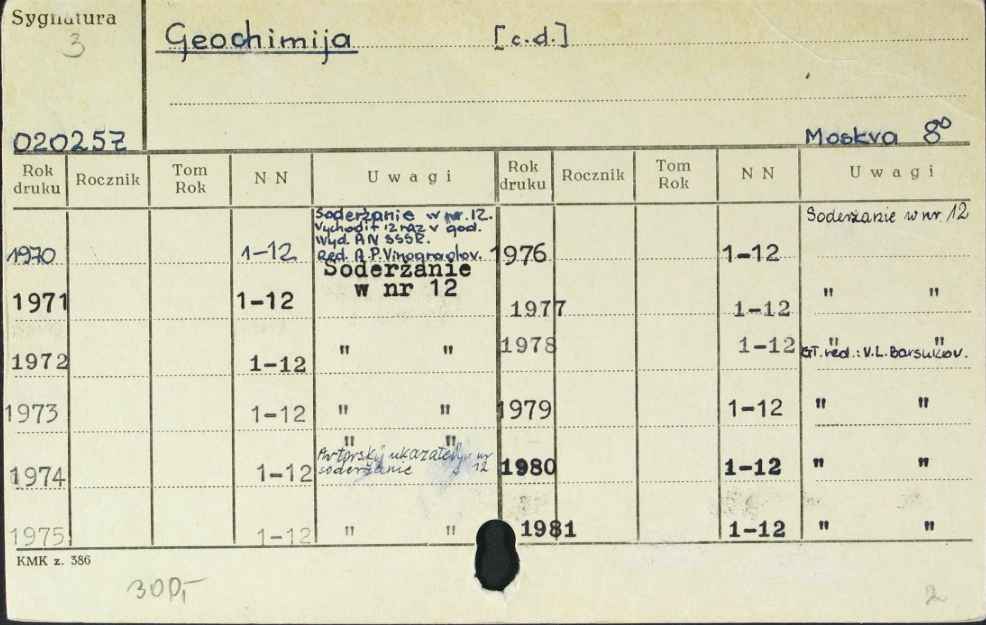 Sygnatura
3
Geochimija [c.d.]
020257 Moskva 8°
Rok druku Rocznik Tom Rok N N Uwagi Rok druku Rocznik Tom Rok N N Uwagi
1970 1-12 Soderžanie w nr. 12.
Vychodit 12 raz v god.
Wyd. AN SSSR.
Red. A.P. Vinogradov.
1971 1-12 Soderżanie
w nr 12
1972 1-12 " "
1973 1-12 " "
1974 1-12 " "
ukazatel' w nr 12
soderžanie
1975 1-12 " "
1976 1-12 Soderżanie w nr 12
1977 1-12 " "
1978 1-12 " "
Gł. red.: V.L. Barsukov.
1979 1-12 " "
1980 1-12 " "
1981 1-12 " "
KMK z. 386